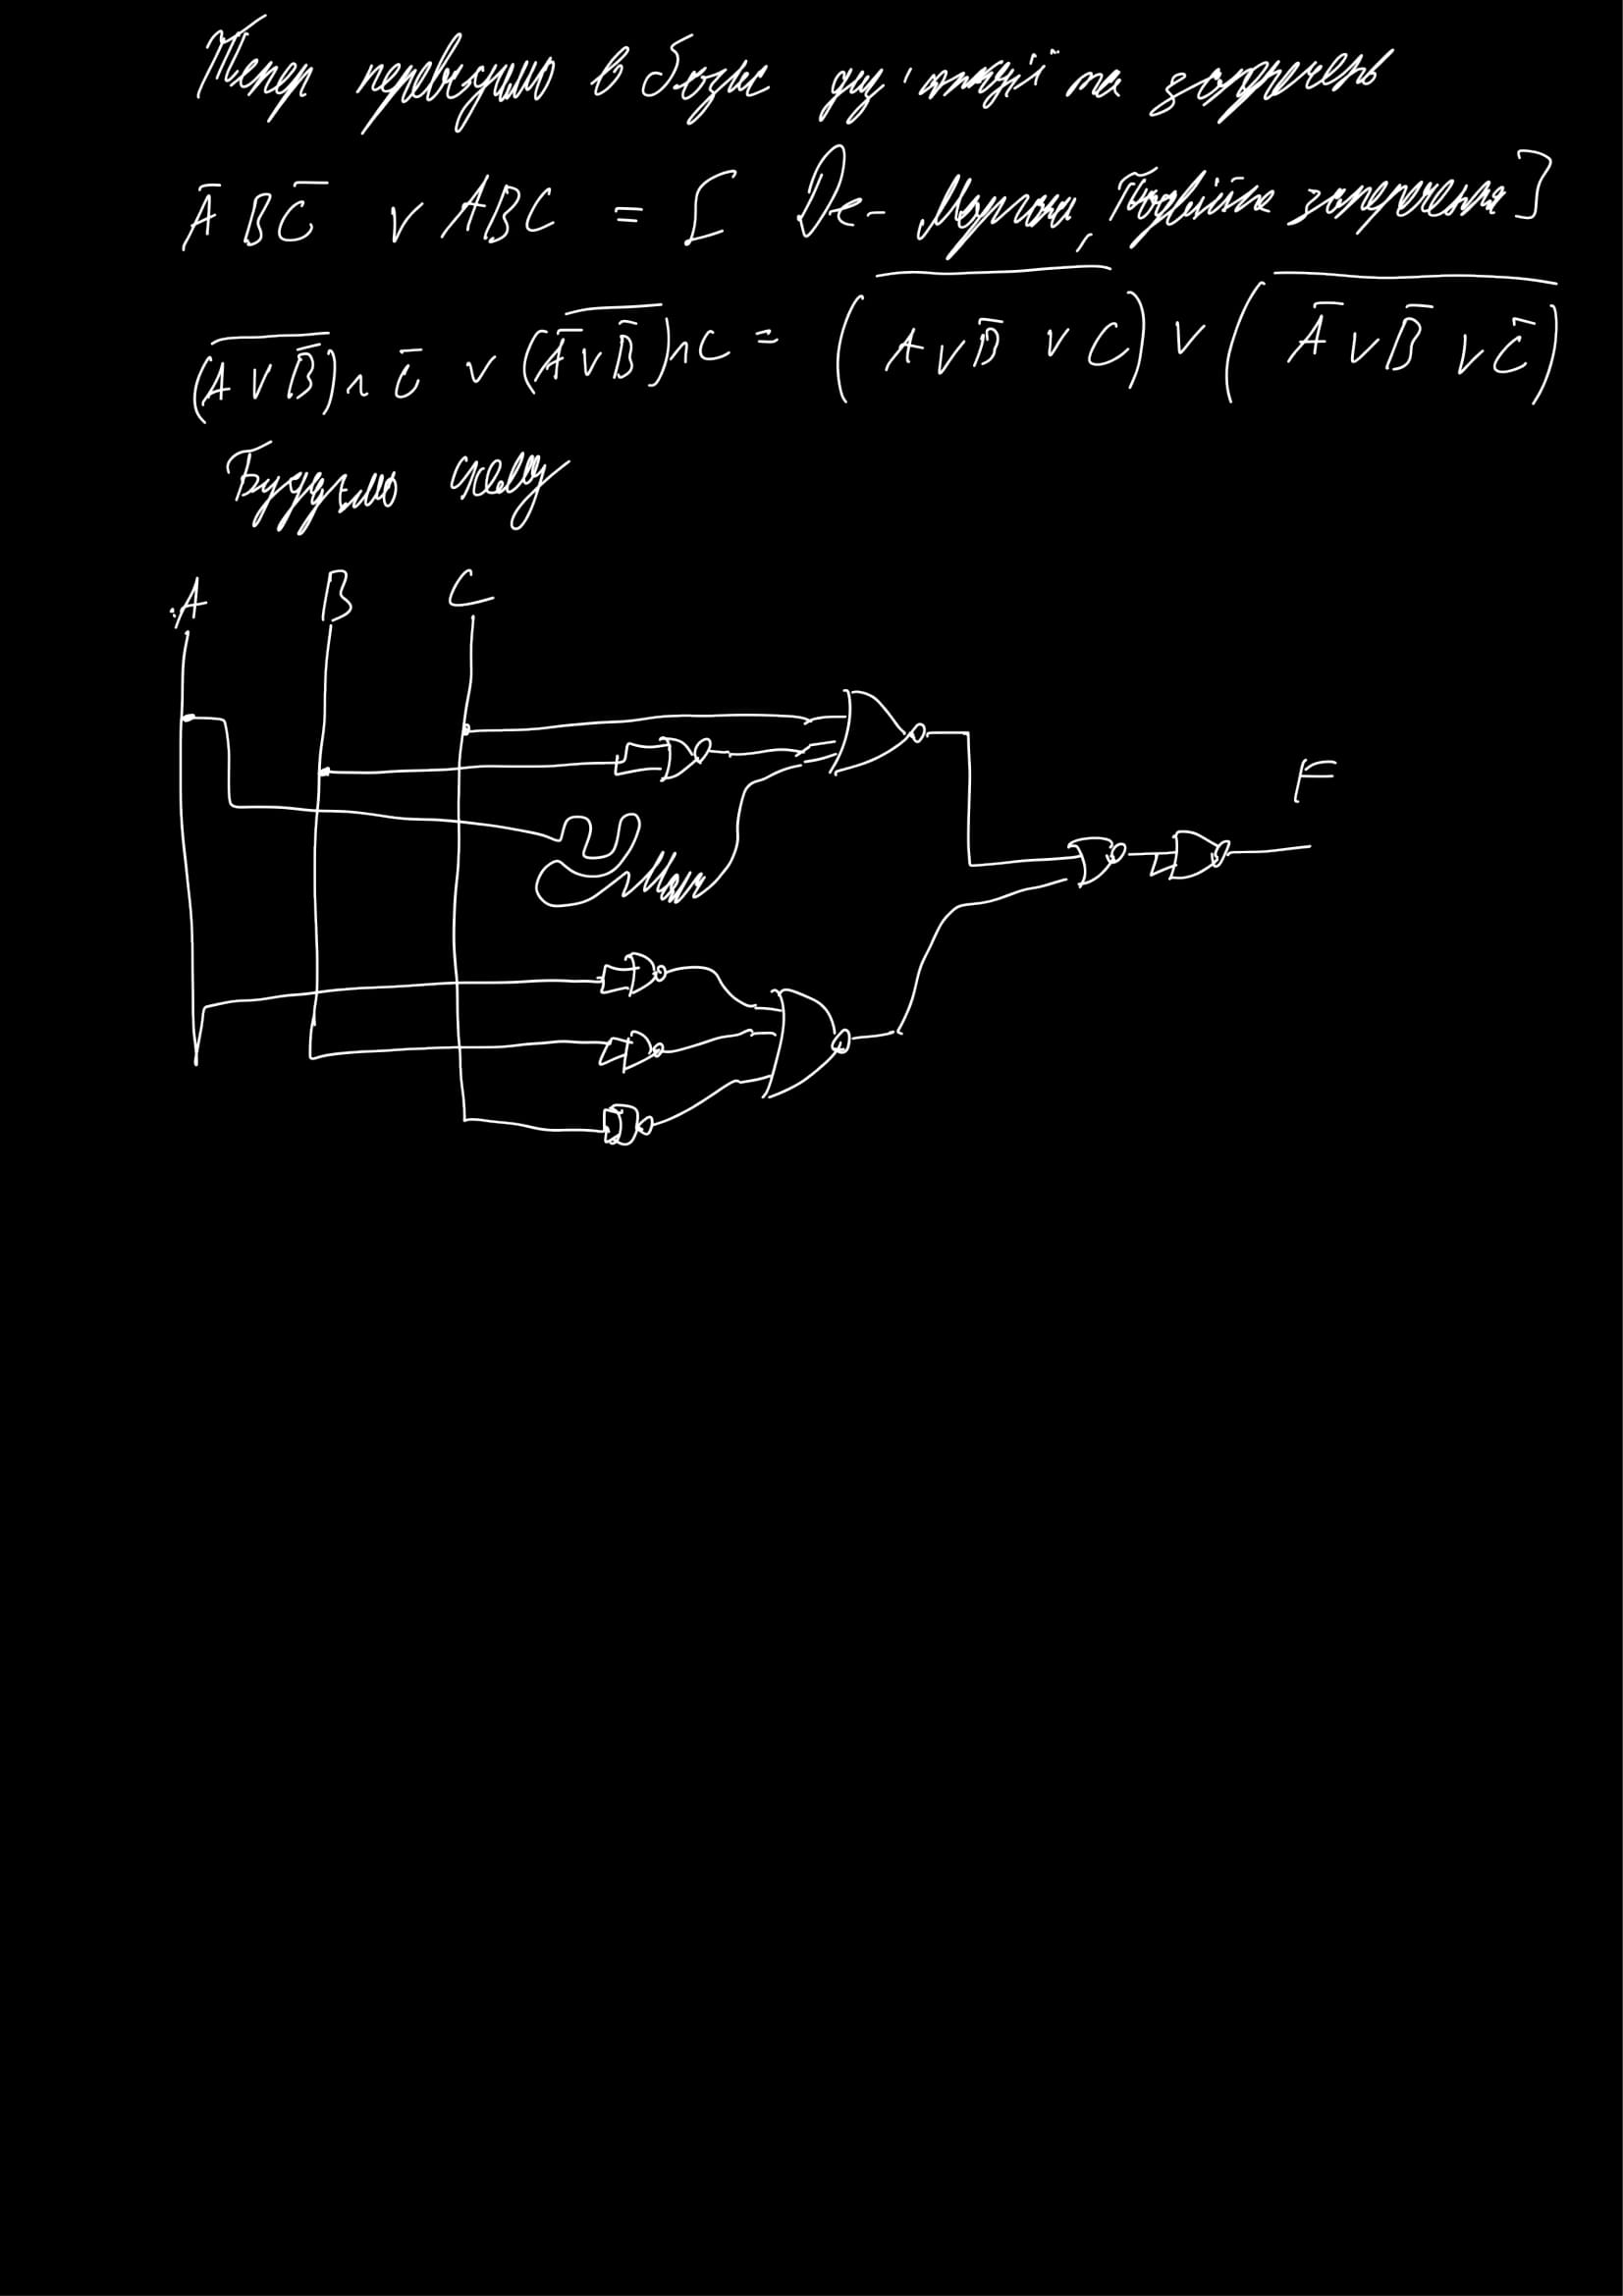 Тепер переводимо в базис диз'юнкції та заперечень
A̅ B C̅ ∨ A B C = [ Де-Моргана, Подвійне заперечення ]
(A̅ ∨ B̅̅) ∧ C̅ ∨ (A̅ ∨ B̅) ∧ C = (A ∨ B̅ ∨ C) ∨ (A̅ ∨ B̅ ∨ C̅)
Будуємо схему
A B C
F